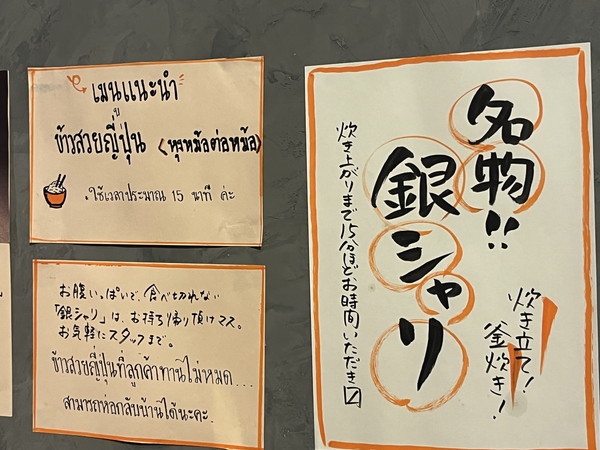 เมนูแนะนำ
ข้าวสวยญี่ปุ่น <หุงหม้อต่อหม้อ>
.ใช้เวลาประมาณ 15 นาที ค่ะ
お腹いっぱいで、食べ切れない
「銀シャリ」は、お持ち帰り頂けマス。
お気軽にスタッフまで。
ข้าวสวยญี่ปุ่นที่ลูกค้าทานไม่หมด...
สามารถห่อกลับบ้านได้นะคะ
名物!!
銀シャリ
炊き上がりまで15分ほどお時間いただき〼
炊き立て!
釜炊き!